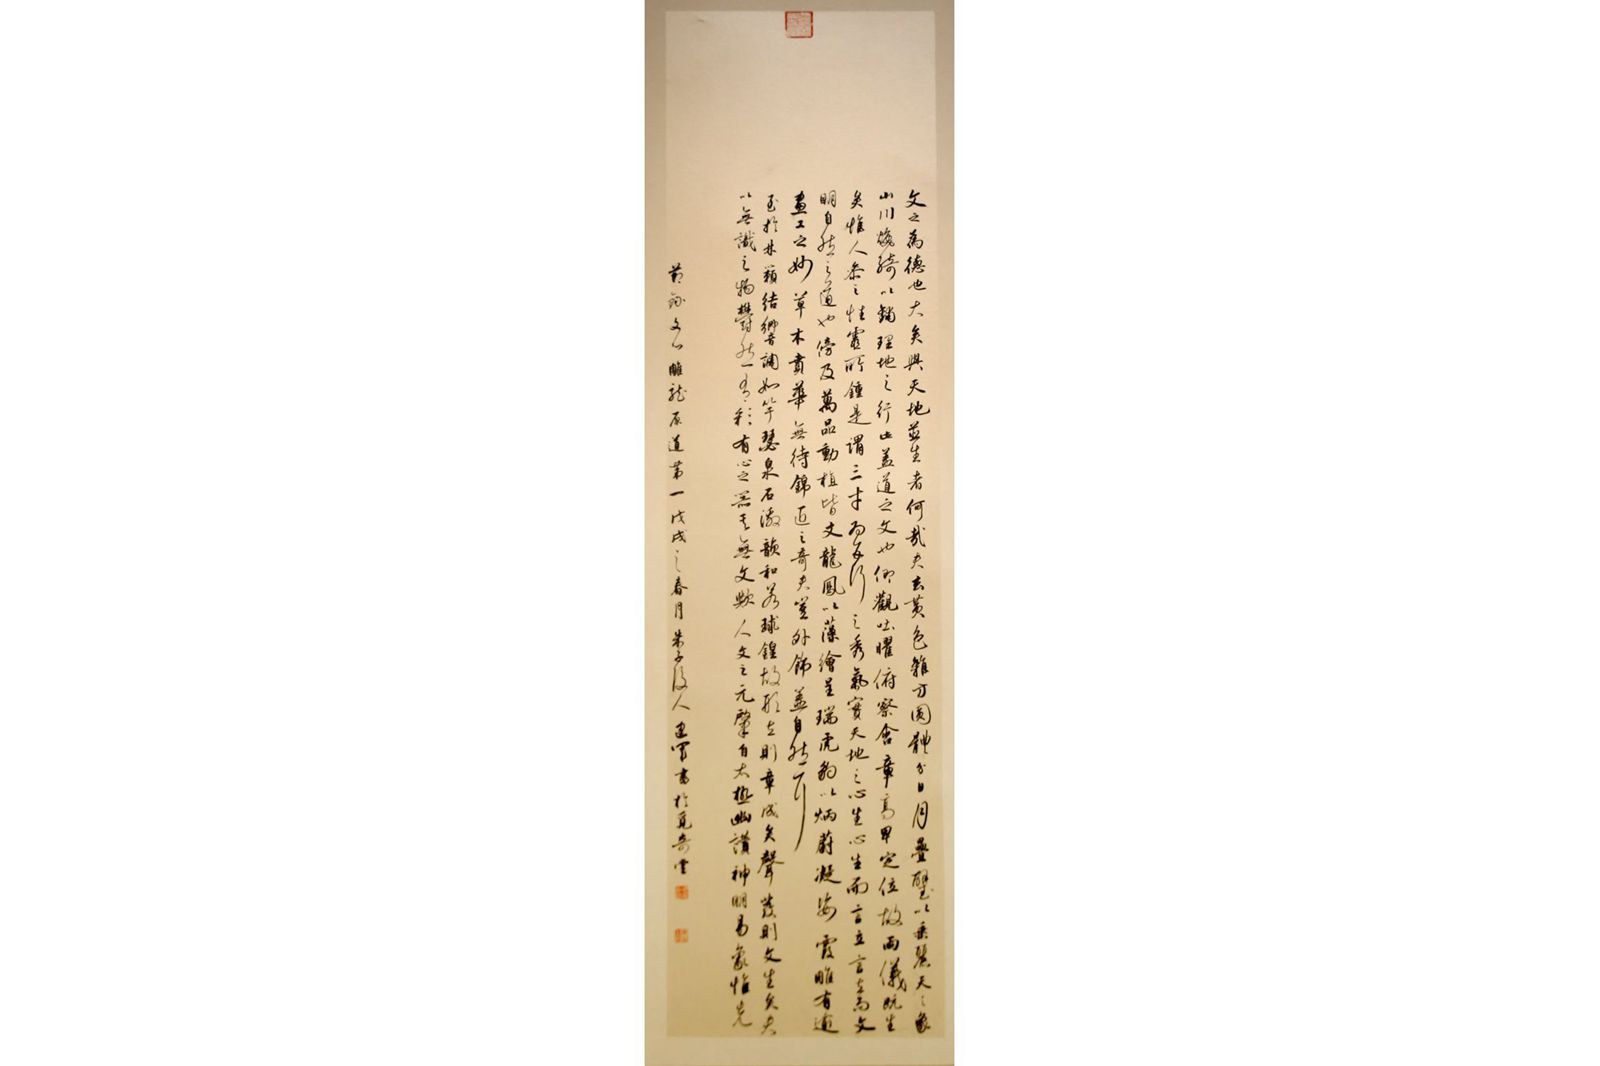 文之為德也大矣與天地並生者何哉夫玄黃色雜方圓體分日月疊璧以垂麗天之象
山川煥綺以鋪理地之行此蓋道之文也仰觀吐曜俯察含章高卑定位故兩儀既生
矣惟人參之性靈所鍾是謂三才為五行之秀氣實天地之心生心生而言立言立為文
明自然之道也傍及萬品動植皆文龍鳳以藻繪呈瑞虎豹以炳蔚凝姿霞雕有逾
畫工之妙草木賁華無待錦匠之奇夫豈外飾蓋自然耳
至於林籟結響調如竽瑟泉石激韻和若球鍠故形立則章成矣聲發則文生矣夫
以無識之物鬱然有彩有心之器其無文歟人文之元肇自太極幽讚神明易象惟先
節錄文心雕龍原道第一戊戌之春月朱子後人建軍書於覓奇堂